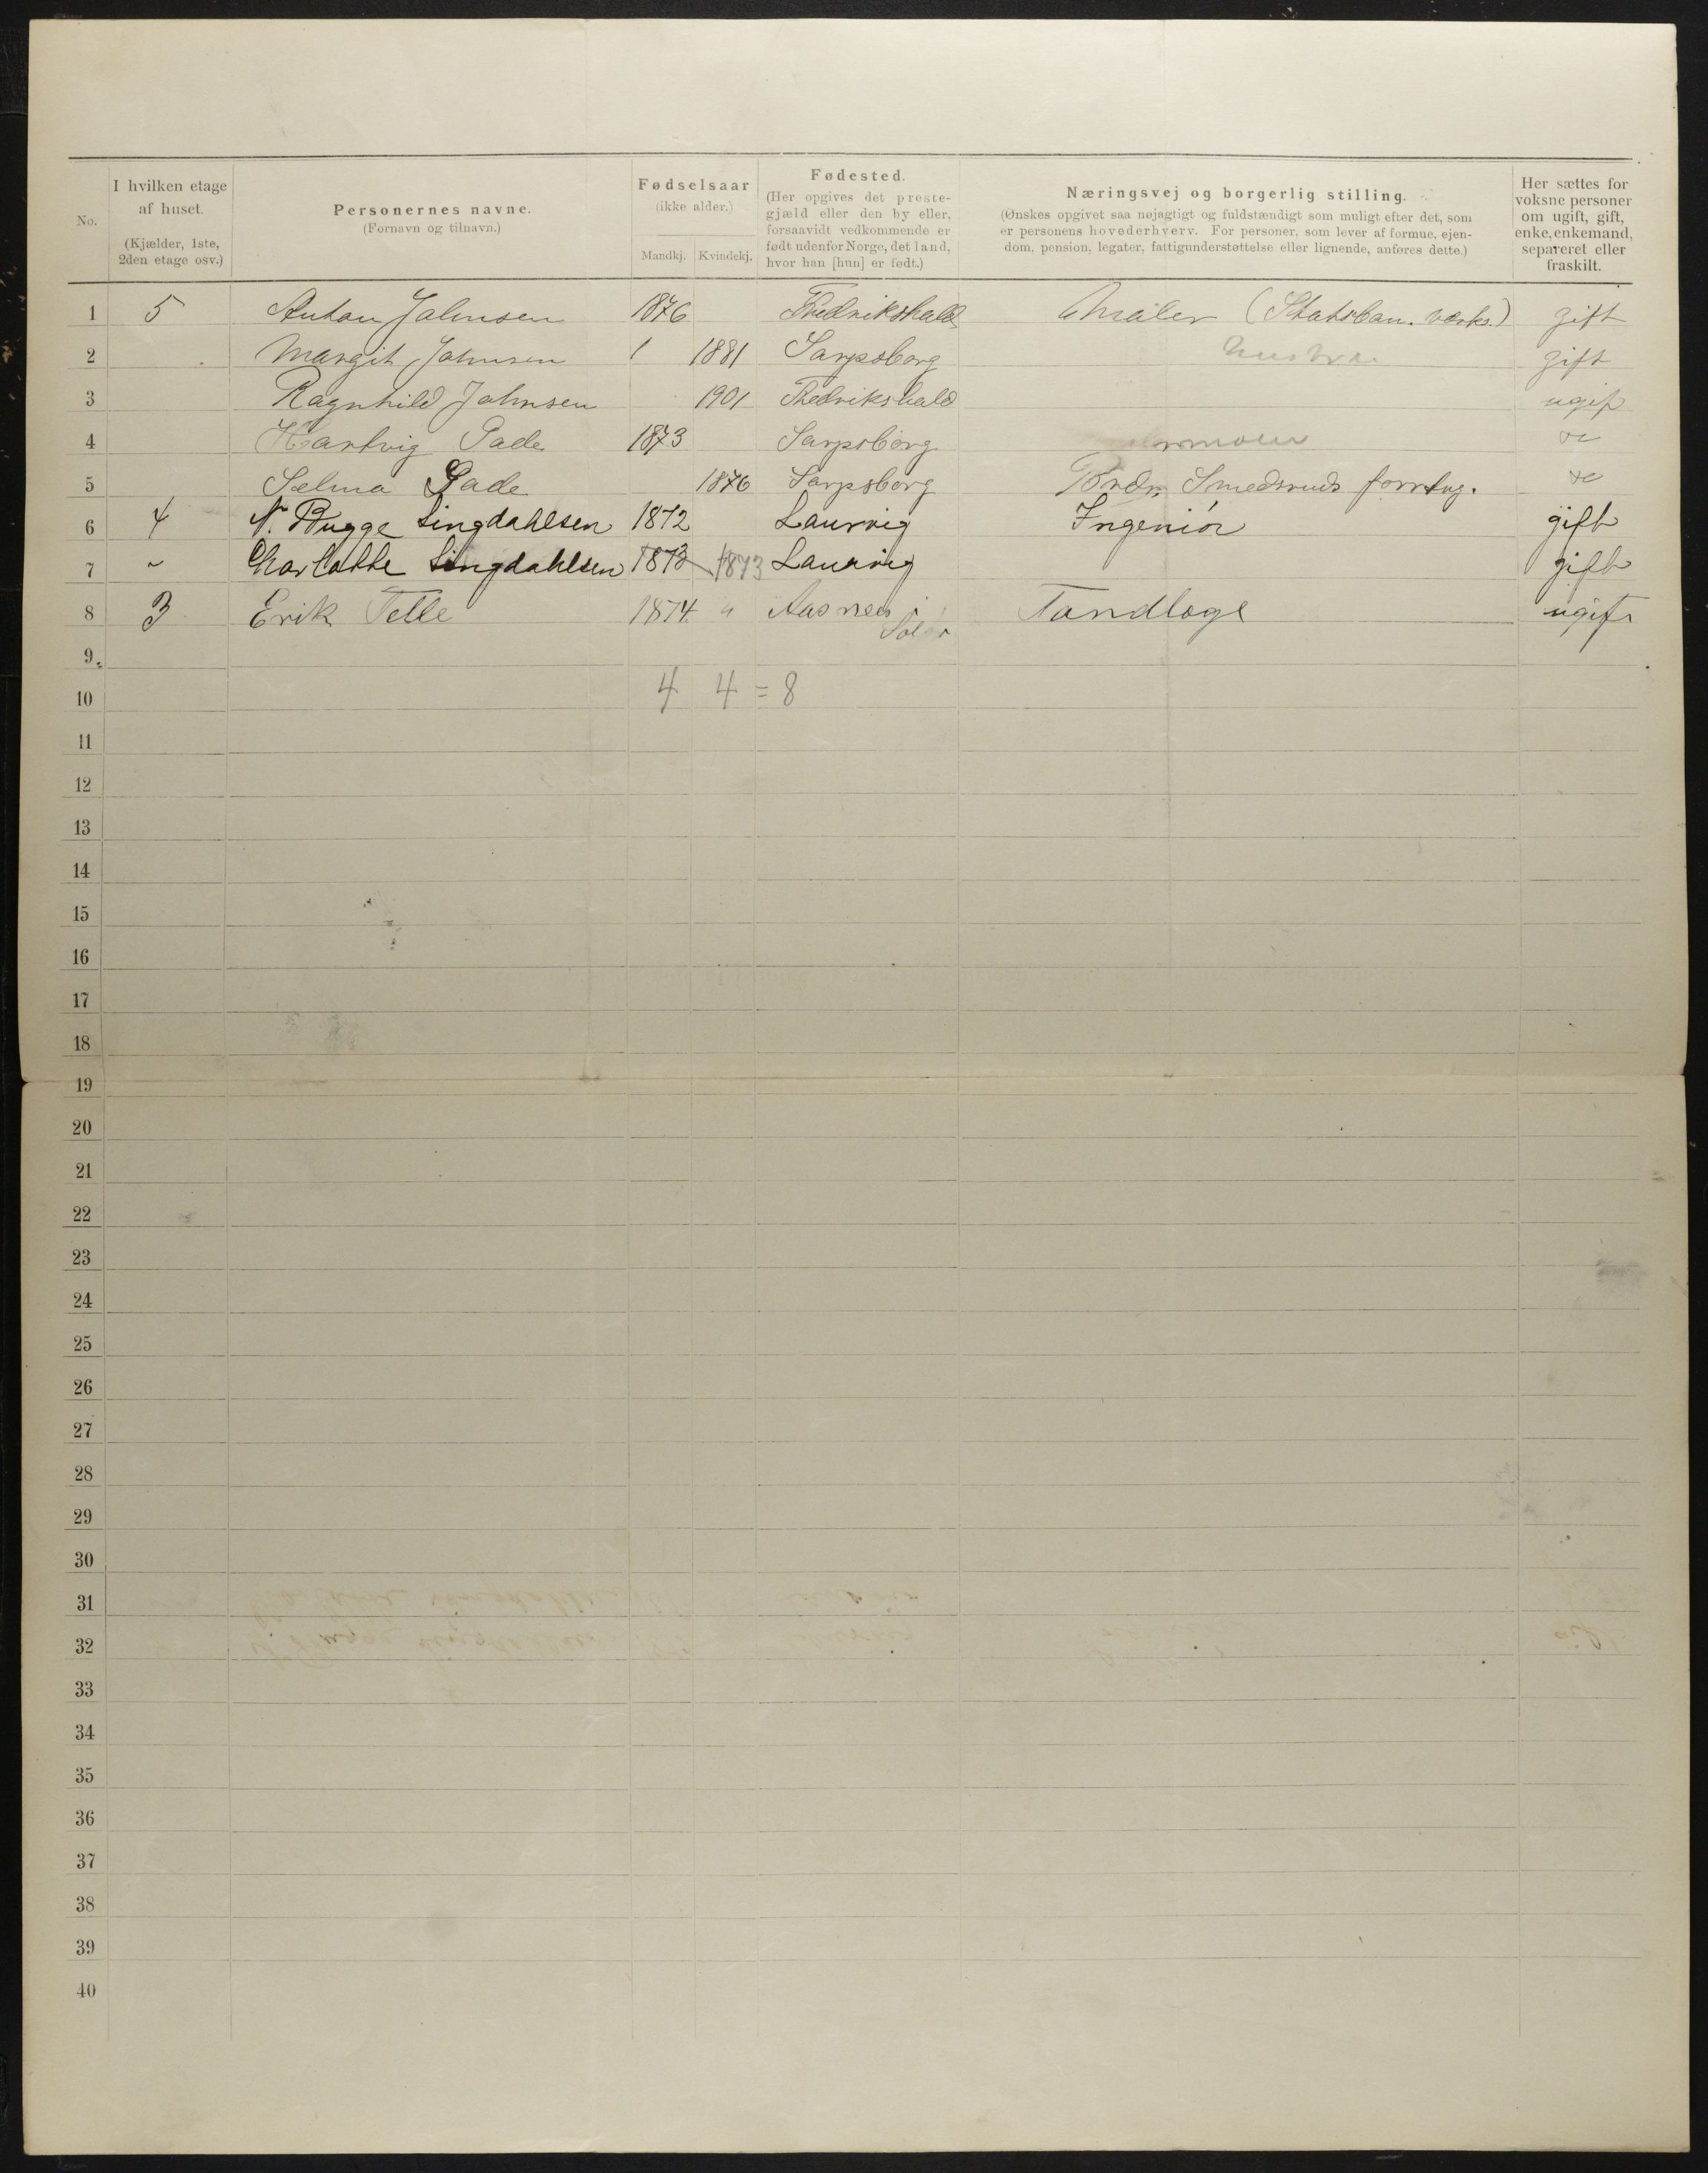 No. I hvilken etage af huset. (Kjælder, 1ste, 2den etage osv.) Personernes navne. (Fornavn og tilnavn.) Fødselsaar (ikke alder.) Mandkj. Kvindekj. Fødested. (Her opgives det prestegjæld eller den by eller, forsaavidt vedkommende er født udenfor Norge, det land, hvor han [hun] er født.) Næringsvej og borgerlig stilling. (Ønskes opgivet saa nøjagtigt og fuldstændigt som muligt efter det, som er personens hovederhverv. For personer, som lever af formue, ejendom, pension, legater, fattigunderstøttelse eller lignende, anføres dette.) Her sættes for voksne personer om ugift, gift, enke, enkemand, separeret eller fraskilt.
1 5 Anton Johnsen 1876 Fredrikshald Maler (Statsban. værks.) gift
2 Margit Johnsen 1881 Sarpsborg Hustru gift
3 Ragnhild Johnsen 1901 Fredrikshald ugift
4 Hartvig Gade 1873 Sarpsborg
5 Selma Gade 1876 Sarpsborg Brdr. Smedsruds forrtng.
6 4 N. Bugge Lingdahlsen 1872 Laurvig Ingeniör gift
7 " Charlotte Lingdahlsen 1873 1873 Laurvig gift
8 3 Erik Telle 1874 " Aasnes i Solør Tandlæge ugift
9
10 4 4 = 8
11
12
13
14
15
16
17
18
19
20
21
22
23
24
25
26
27
28
29
30
31
32
33
34
35
36
37
38
39
40